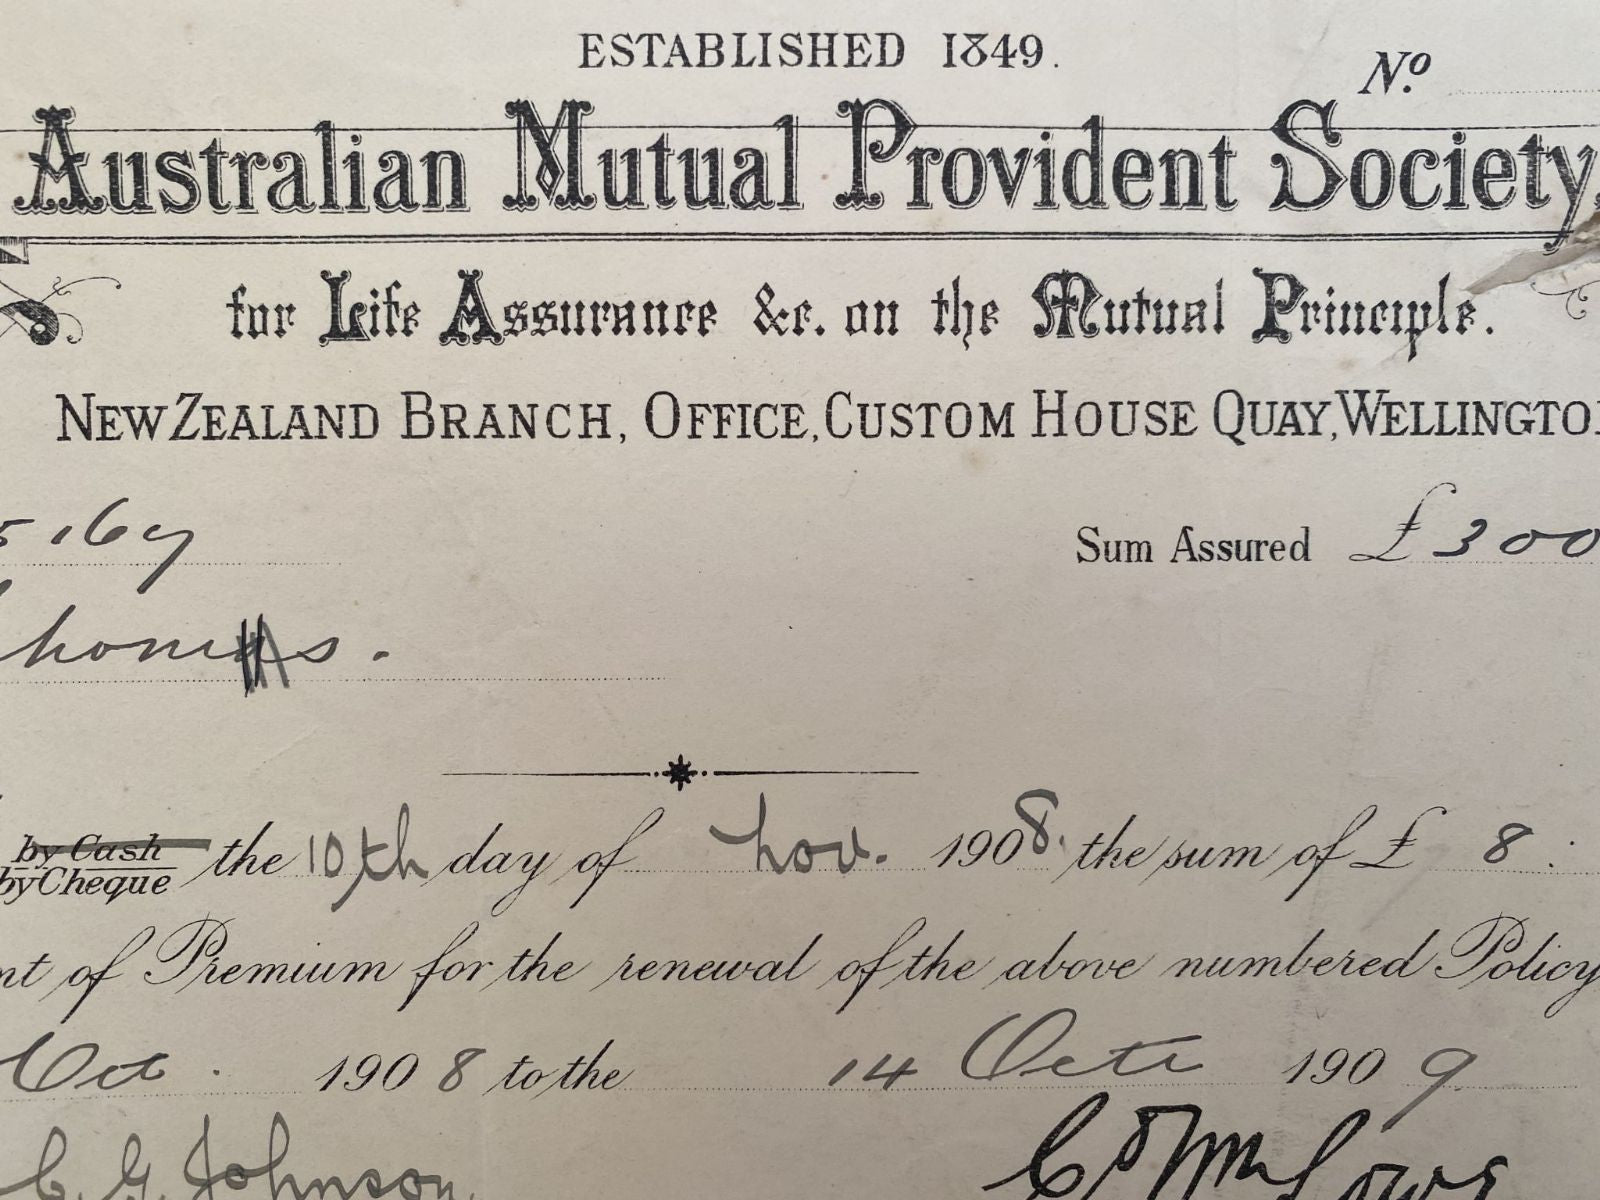 ESTABLISHED 1849.
No.
Australian Mutual Provident Society,
for Life Assurance &c. on the Mutual Principle.
NEW ZEALAND BRANCH, OFFICE, CUSTOM HOUSE QUAY, WELLINGTO
5167
Sum Assured £300
homas.
by Cash
by Cheque
the 10th day of Nov. 1908. the sum of £ 8 :
nt of Premium for the renewal of the above numbered Policy
Oct. 1908 to the 14 Oct 1909
C. G. Johnson.
Lowe